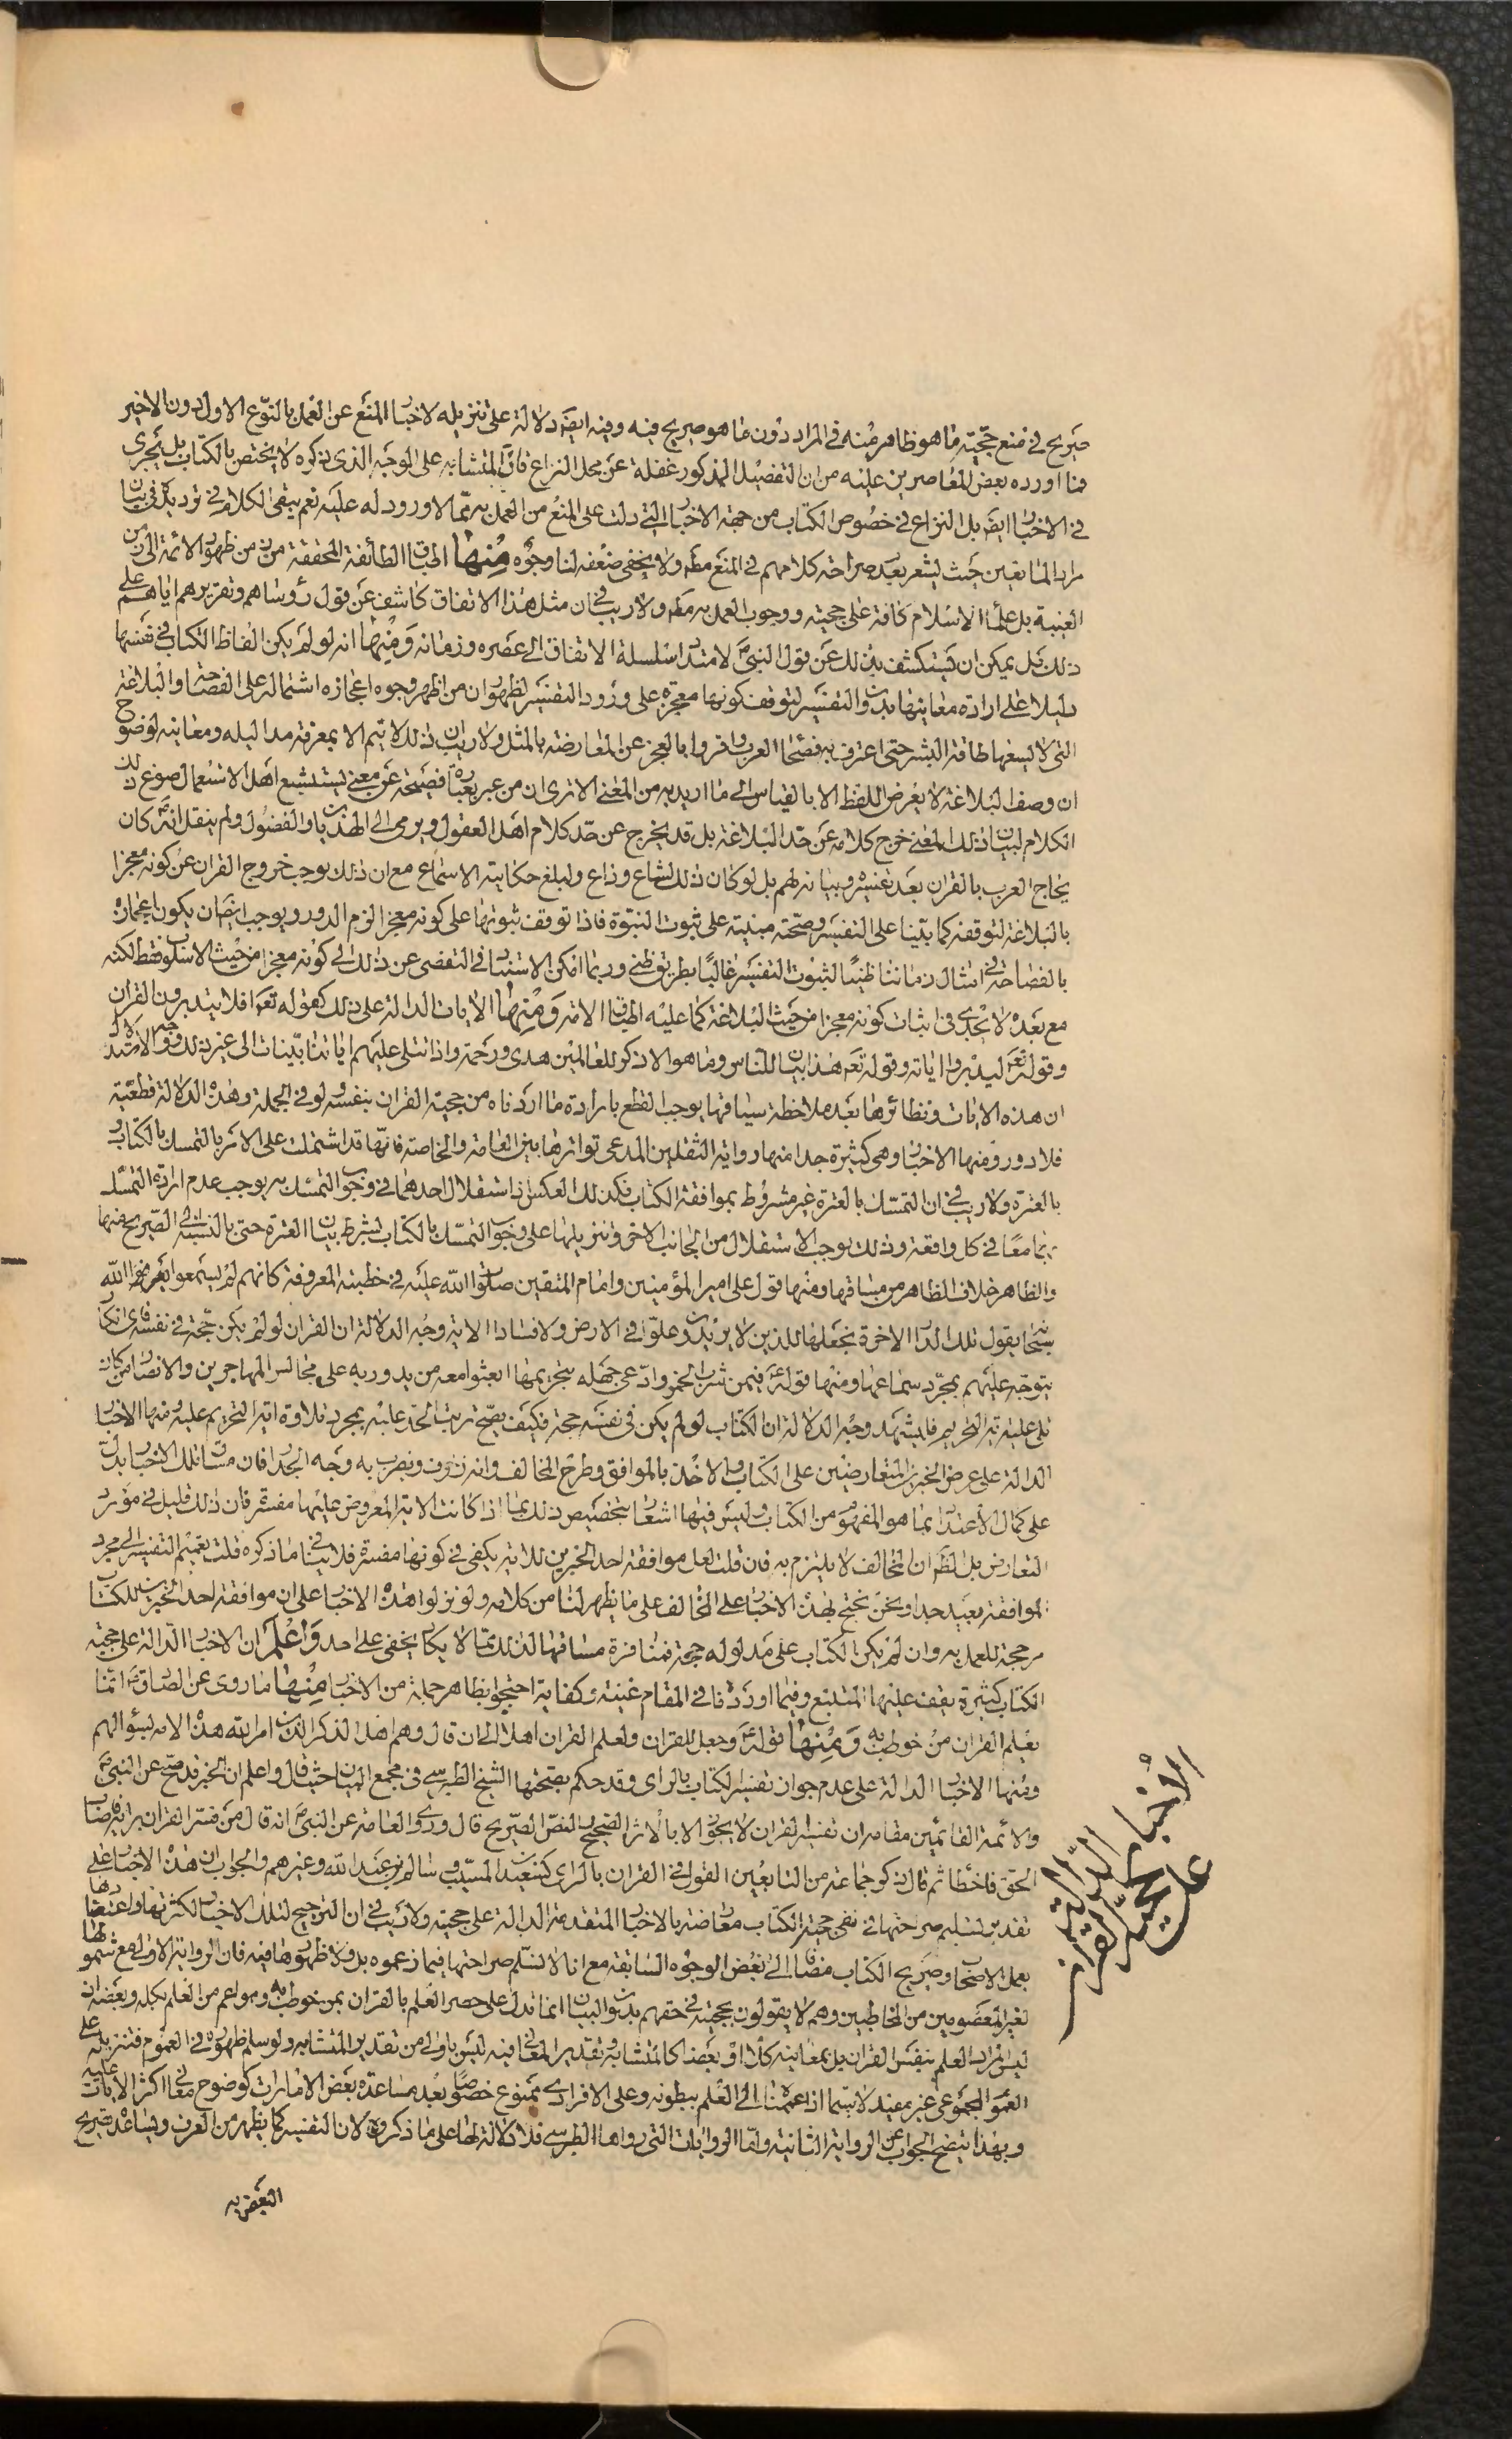 صريح في منع حجّيته ما هو ظاهر منه في المراد دون ما هو صريح فيه وفيه ايضا دلالة على تنزيله لاخبار المنع عن العمل بالنوع الاول دون الاخير
فما اورده بعض المعاصرين عليه من ان التفصيل المذكور غفلة عن محل النزاع فان المتشابه على الوجه الذى ذكره لا يختص بالكتاب بل يجرى
في الاخبار ايضا بل النزاع في خصوص الكتاب من جهة الاخبار التي دلت على المنع من العمل به ممّا لا ورود له عليه نعم يبقى الكلام في ترديده في بيان
مراد المانعين حيث يشعر بعدم صراحة كلامهم في المنع مطلقا ولا يخفى ضعفه لنا وجوه مِنها اطباق الطائفة المحققة من زمن ظهور الائمة الى زمن
الغيبة بل علماء الاسلام كافة على حجيته ووجوب العمل به مط ولا ريب في ان مثل هذا الاتفاق كاشف عن قول رؤساهم وتقريرهم اياهم على
ذلك بل يمكن ان يستكشف بذلك عن قول النبي لامتداد سلسلة الاتفاق الى عصره وزمانه وَمِنها انه لو لم يكن الفاظ الكتاب في نفسها
دليلا على ارادة معانيها بدون التفسير لتوقف كونها معجزة على ورود التفسير لظهور ان من اظهر وجوه اعجازه اشتماله على الفصاحة والبلاغة
التى لا يسعها طاقة البشر حتى اعترف به فصحاء العرب واقروا بالعجز عن المعارضة بالمثل ولا ريب ان ذلك لا يتم الا بمعرفة مداليله ومعانيه لوضوح
ان وصف البلاغة لا يعرض اللفظ الا بالقياس الى ما اريد به من المعنى الا ترى ان من عبر بعبارة فصيحة عن معنى يستشنع اهل الاستعمال صوغ ذلك
الكلام لبيان ذلك المعنى خرج كلامه عن حدّ البلاغة بل قد يخرج عن حدّ كلام اهل العقول ويرمى الى الهذيان والفضول ولم ينقل انه كان
يحاج العرب بالقران بعد تفسيره وبيانه لهم بل لو كان ذلك لشاع وذاع ولبلغ حكايته الاسماع مع ان ذلك يوجب خروج القران عن كونه معجزا
بالبلاغة لتوقفه كما بيّنا على التفسير وصحّته مبنية على ثبوت النبوّة فاذا توقف ثبوتها على كونه معجزا لزم الدور ويوجب ايضا ان يكون اعجازه
بالفصاحة في امثال زماننا ظنيا لثبوت التفسير غالبًا بطريق ظني وربما امكن الاستناد في التفصى عن ذلك الى كونه معجزا من حيث الاسلوب فقط لكنه
مع بعده لا يجدى في اثبات كونه معجزا من حيث البلاغة كما عليه اطباق الامة وَمِنها الايات الدالة على ذلك كقوله تعالى افلا يتدبرون القران
وقوله تعالى ليدبروا اياته وقوله تعالى هذا بيان للناس وما هو الا ذكر للعالمين هدى ورحمة واذا تتلى عليهم اياتنا بيّنات الى غير ذلك وجه الاستدلال
ان هذه الايات ونظائرها بعد ملاحظة سياقها يوجب القطع بارادة ما اردناه من حجية القران بنفسه ولو في الجملة وهذه الدلالة قطعية
فلا دور ومنها الاخبار وهى كثيرة جدا منها رواية الثقلين المدعى تواترها بين العامة والخاصة فانّها قد اشتملت على الامر بالتمسك بالكتاب و
بالعترة ولا ريب في ان التمسّك بالعترة غير مشروط بموافقة الكتاب فكذلك العكس اذ استقلال احدهما في وجوب التمسك به يوجب عدم ارادة التمسّك
بهما معًا في كل واقعة وذلك يوجب الاستقلال من الجانب الاخر وتنزيلها على وجوب التمسّك بالكتاب بشرط بيان العترة حتى بالنسبة الى الصّريح منها
والظاهر خلاف الظاهر من مساقها ومنها قول على امير المؤمنين وامام المتقين صلوات الله عليه في خطبته المعروفة كانهم لم يسمعوا بقول الله
سبحانه يقول تلك الدار الاخرة نجعلها للذين لا يريدون علوّا في الارض ولا فسادا الاية وجه الدلالة ان القران لو لم يكن حجّة في نفسه فاى انكار
يتوجّه عليهم بمجرّد سماعها ومنها قوله فيمن شرب الخمر وادّعى جهله بتحريمها ابعثوا معه من يدور به على مجالس المهاجرين والانصار من كان
تلى عليه اية التحريم فليشهد وجه الدلالة ان الكتاب لو لم يكن في نفسه حجة فكيف يصحّ ترتب الحدّ عليه بمجرد تلاوة اية التحريم عليه ومنها الاخبار
الدالة على عرض الخبرين المتعارضين على الكتاب والاخذ بالموافق وطرح المخالف وانه زخرف ويضرب به وجه الجدار فان مساق تلك الاخبار يدل
على كمال الاعتداد بما هو المفهوم من الكتاب وليس فيها اشعار بتخصيص ذلك بما اذا كانت الاية المعروض عليها مفسّرة فان ذلك قليل في مورد
التعارض بل الظاهر ان المخالف لا يلتزم به فان قلت لعل موافقة احد الخبرين للاية يكفى في كونها مفسّرة فلا ينافي ما ذكره قلت تعميم التفسير الى مجرد
الموافقة بعيد جدا ونحن نحتج لهذه الاخبار على المخالف على ما يظهر لنا من كلامه ولو نزلوا هذه الاخبار على ان موافقة احد الخبرين للكتاب
مرجحة للعمل به وان لم يكن الكتاب على مدلوله حجة فمنافرة مساقها لذلك ممّا لا يكاد يخفى على احد وَاعْلَم ان الاخبار الدّالة على حجية
الكتاب كثيرة يقف عليها المتتبع وفيما اوردناه في المقام غنية وكفاية احتجوا بظاهر جملة من الاخبار مِنها ما روى عن الصادق انما
يعلم القران من خوطب به وَمِنها قوله وجعل للقران ولعلم القران اهلا الى ان قال وهم اهل الذكر الذين امر الله هذه الامة بسؤالهم
ومنها الاخبار الدالة على عدم جواز تفسير الكتاب بالراى وقد حكم بصحّتها الشيخ الطبرسى في مجمع البيان حيث قال واعلم ان الخبر قد صح عن النبي
والائمة القائمين مقامه ان تفسير القران لا يجوز الا بالاثر الصحيح والنصّ الصّريح قال وروى العامة عن النبي انه قال من فسّر القران برايه فاصاب
الحق فاخطا ثم قال ذكر جماعة من التابعين القول في القران بالراى كسعيد بن المسيّب وسالم بن عبد الله وغيرهم والجواب ان هذه الاخبار على
تقدير تسليم صراحتها في نفى حجية الكتاب معارضة بالاخبار المتقدمة الدالة على حجيته ولا ريب في ان الترجيح لتلك الاخبار لكثرتها واعتضادها
بعمل الاصحاب وصريح الكتاب مضافا الى بعض الوجوه السّابقة مع انا لا نسلّم صراحتها فيما زعموه بل ولا ظهورها فيه فان الرواية الاولى مع شمولها
لغير المعصومين من المخاطبين وهم لا يقولون بحجيته في حقهم بدون البيان انما تدل على حصر العلم بالقران بمن خوطب به وهو اعم من العلم بكله وبعضه اذ
ليس المراد العلم بنفس القران بل بمعانيه كلّا او بعضا كالمتشابه وتقدير المعانى فيه ليس باولى من تقدير المتشابه ولو سلم ظهوره في العموم فتنزيله على
العموم المجموعى غير مفيد لا سيّما اذا عممناه الى العلم ببطونه وعلى الافرادى ممنوع خصوصًا بعد مساعدة بعض الامارات كوضوح معانى اكثر الايات عليه
وبهذا يتضح الجواب عن الرواية الثانية وامّا الروايات التى رواها الطبرسى فلا دلالة لها على ما ذكروه لان التفسير كما يظهر من العرف ويساعد تصريح
البعض به
الاخبار
الدّالة
على حجية
القران